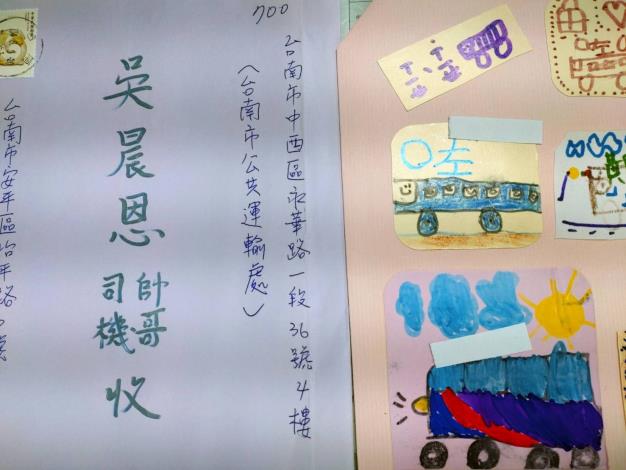 700
台南市中西區永華路一段36號4樓
(台南市公共運輸處)
吳晨恩
帥哥
司機
收
台南市安平區怡平路
左